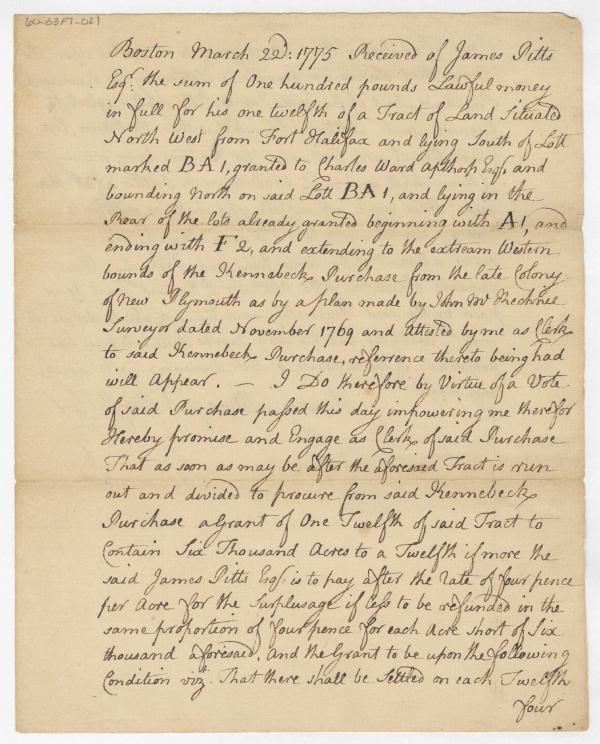 60-33F1-021
Boston March 22d: 1775 Received of James Pitts
Esqr. the sum of One hundred pounds Lawful money
in full for his one twelfth of a Tract of Land Situated
North West from Fort Halifax and lying South of Lott
marked BA1, granted to Charles Ward Apthorp Esqr. and
bounding North on said Lott BA1, and lying in the
Rear of the lots already granted beginning with A1, and
ending with F2, and extending to the extream Western
bounds of the Kennebeck Purchase from the late Colony
of New Plymouth as by a plan made by John Mc Kechnie
Surveyor dated November 1769 and Attested by me as Clerk
to said Kennebeck Purchase, referrence thereto being had
will Appear. — I Do therefore by Virtue of a Vote
of said Purchase passed this day impowering me therefor
Hereby promise and Engage as Clerk of said Purchase
That as soon as may be after the aforesaid Tract is run
out and divided to procure from said Kennebeck
Purchase a Grant of One Twelfth of said Tract to
Contain Six Thousand Acres to a Twelfth if more the
said James Pitts Esqr. is to pay after the rate of four pence
per Acre for the Surplusage if less to be refunded in the
same proportion of four pence for each Acre short of Six
thousand aforesaid. And the Grant to be upon the following
Condition vizt. That there shall be Settled on each Twelfth
four